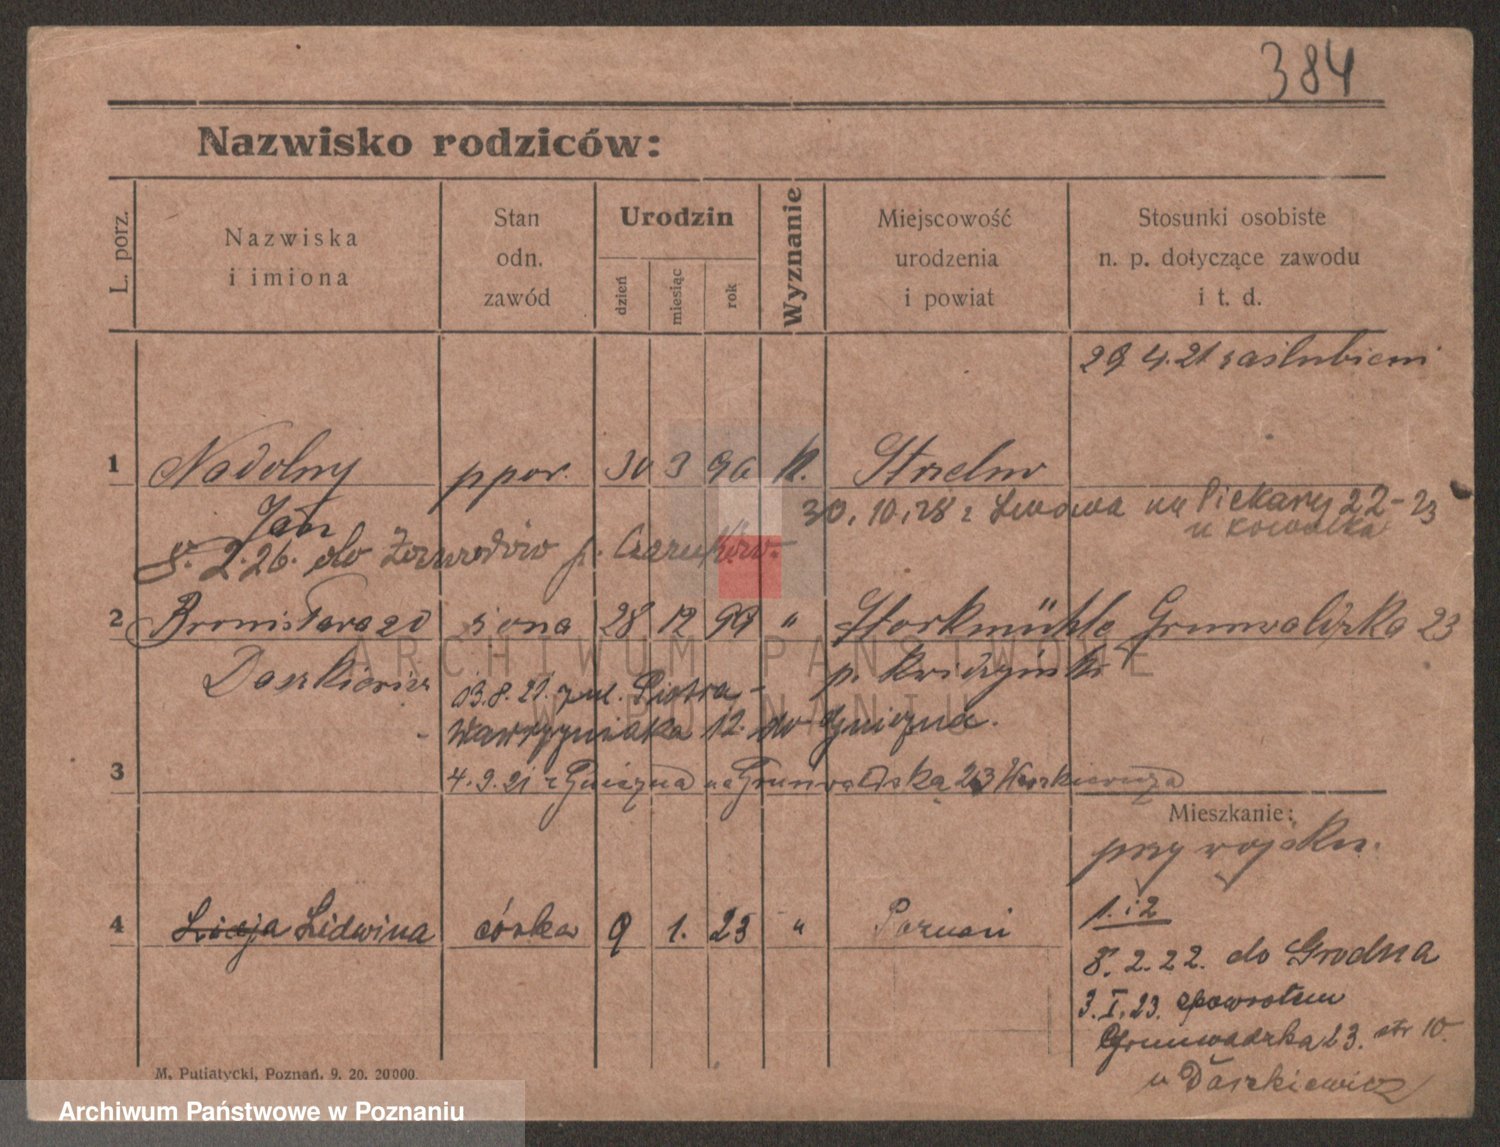 384
Nazwisko rodziców:
L. porz.
Nazwiska
i imiona
Stan
odn.
zawód
Urodzin
dzień
miesiąc
rok
Wyznanie
Miejscowość
urodzenia
i powiat
Stosunki osobiste
n. p. dotyczące zawodu
i t. d.
29 4.21 zaślubieni
1 Nadolny ppor. 30 3 96 k. Strzelno
Jan
30.10.28 z Lwowa na Piekary 22-23
u Kowalka
8.2.26. do
2 Bronisława zd żona 28 12 99 " Storkmühle Grunwaldzka 23
Daszkiewicz
p. Kwidzyński
03.8.21. z ul. Piotra
Wawrzyniaka 12. do Gniezna.
3
4.9.21 z Gniezna na Grunwaldzka 23
Mieszkanie:
przy wojsku.
4 Licja Lidwina córka 9 1. 23 " Poznań
1. i 2
8.2.22. do Grodna
3.I.23. spowrotem
Grunwadzka 23. str 10.
u Daszkiewicz
M. Putiatycki, Poznań. 9. 20. 20000.
ARCHIWUM PAŃSTWOWE
W POZNANIU
Archiwum Państwowe w Poznaniu